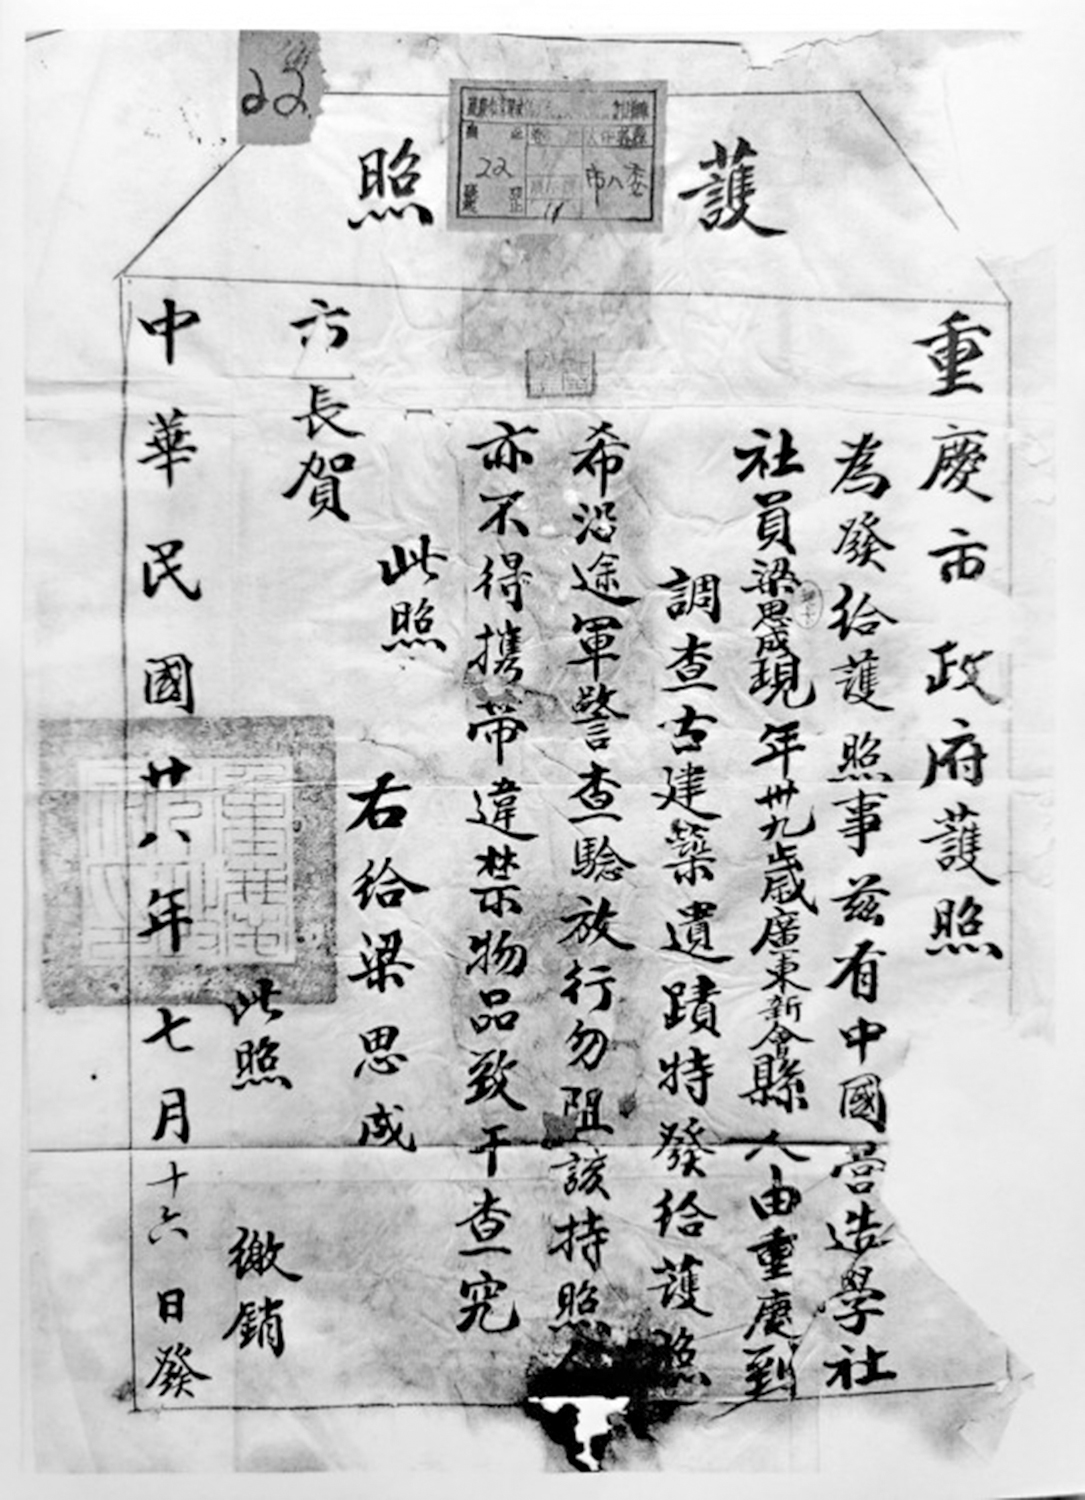 護照
22
重慶市政府護照
為發給護照事兹有中國營造學社社
社員梁思成現年卅九歲廣東新會縣人由重慶到
調查古建築遺蹟特發給護照
希沿途軍警查驗放行勿阻該持照人
亦不得攜帶違禁物品致干查究
此照
右給梁思成
市長賀
此照
繳銷
中華民國廿八年七月十六日發
22